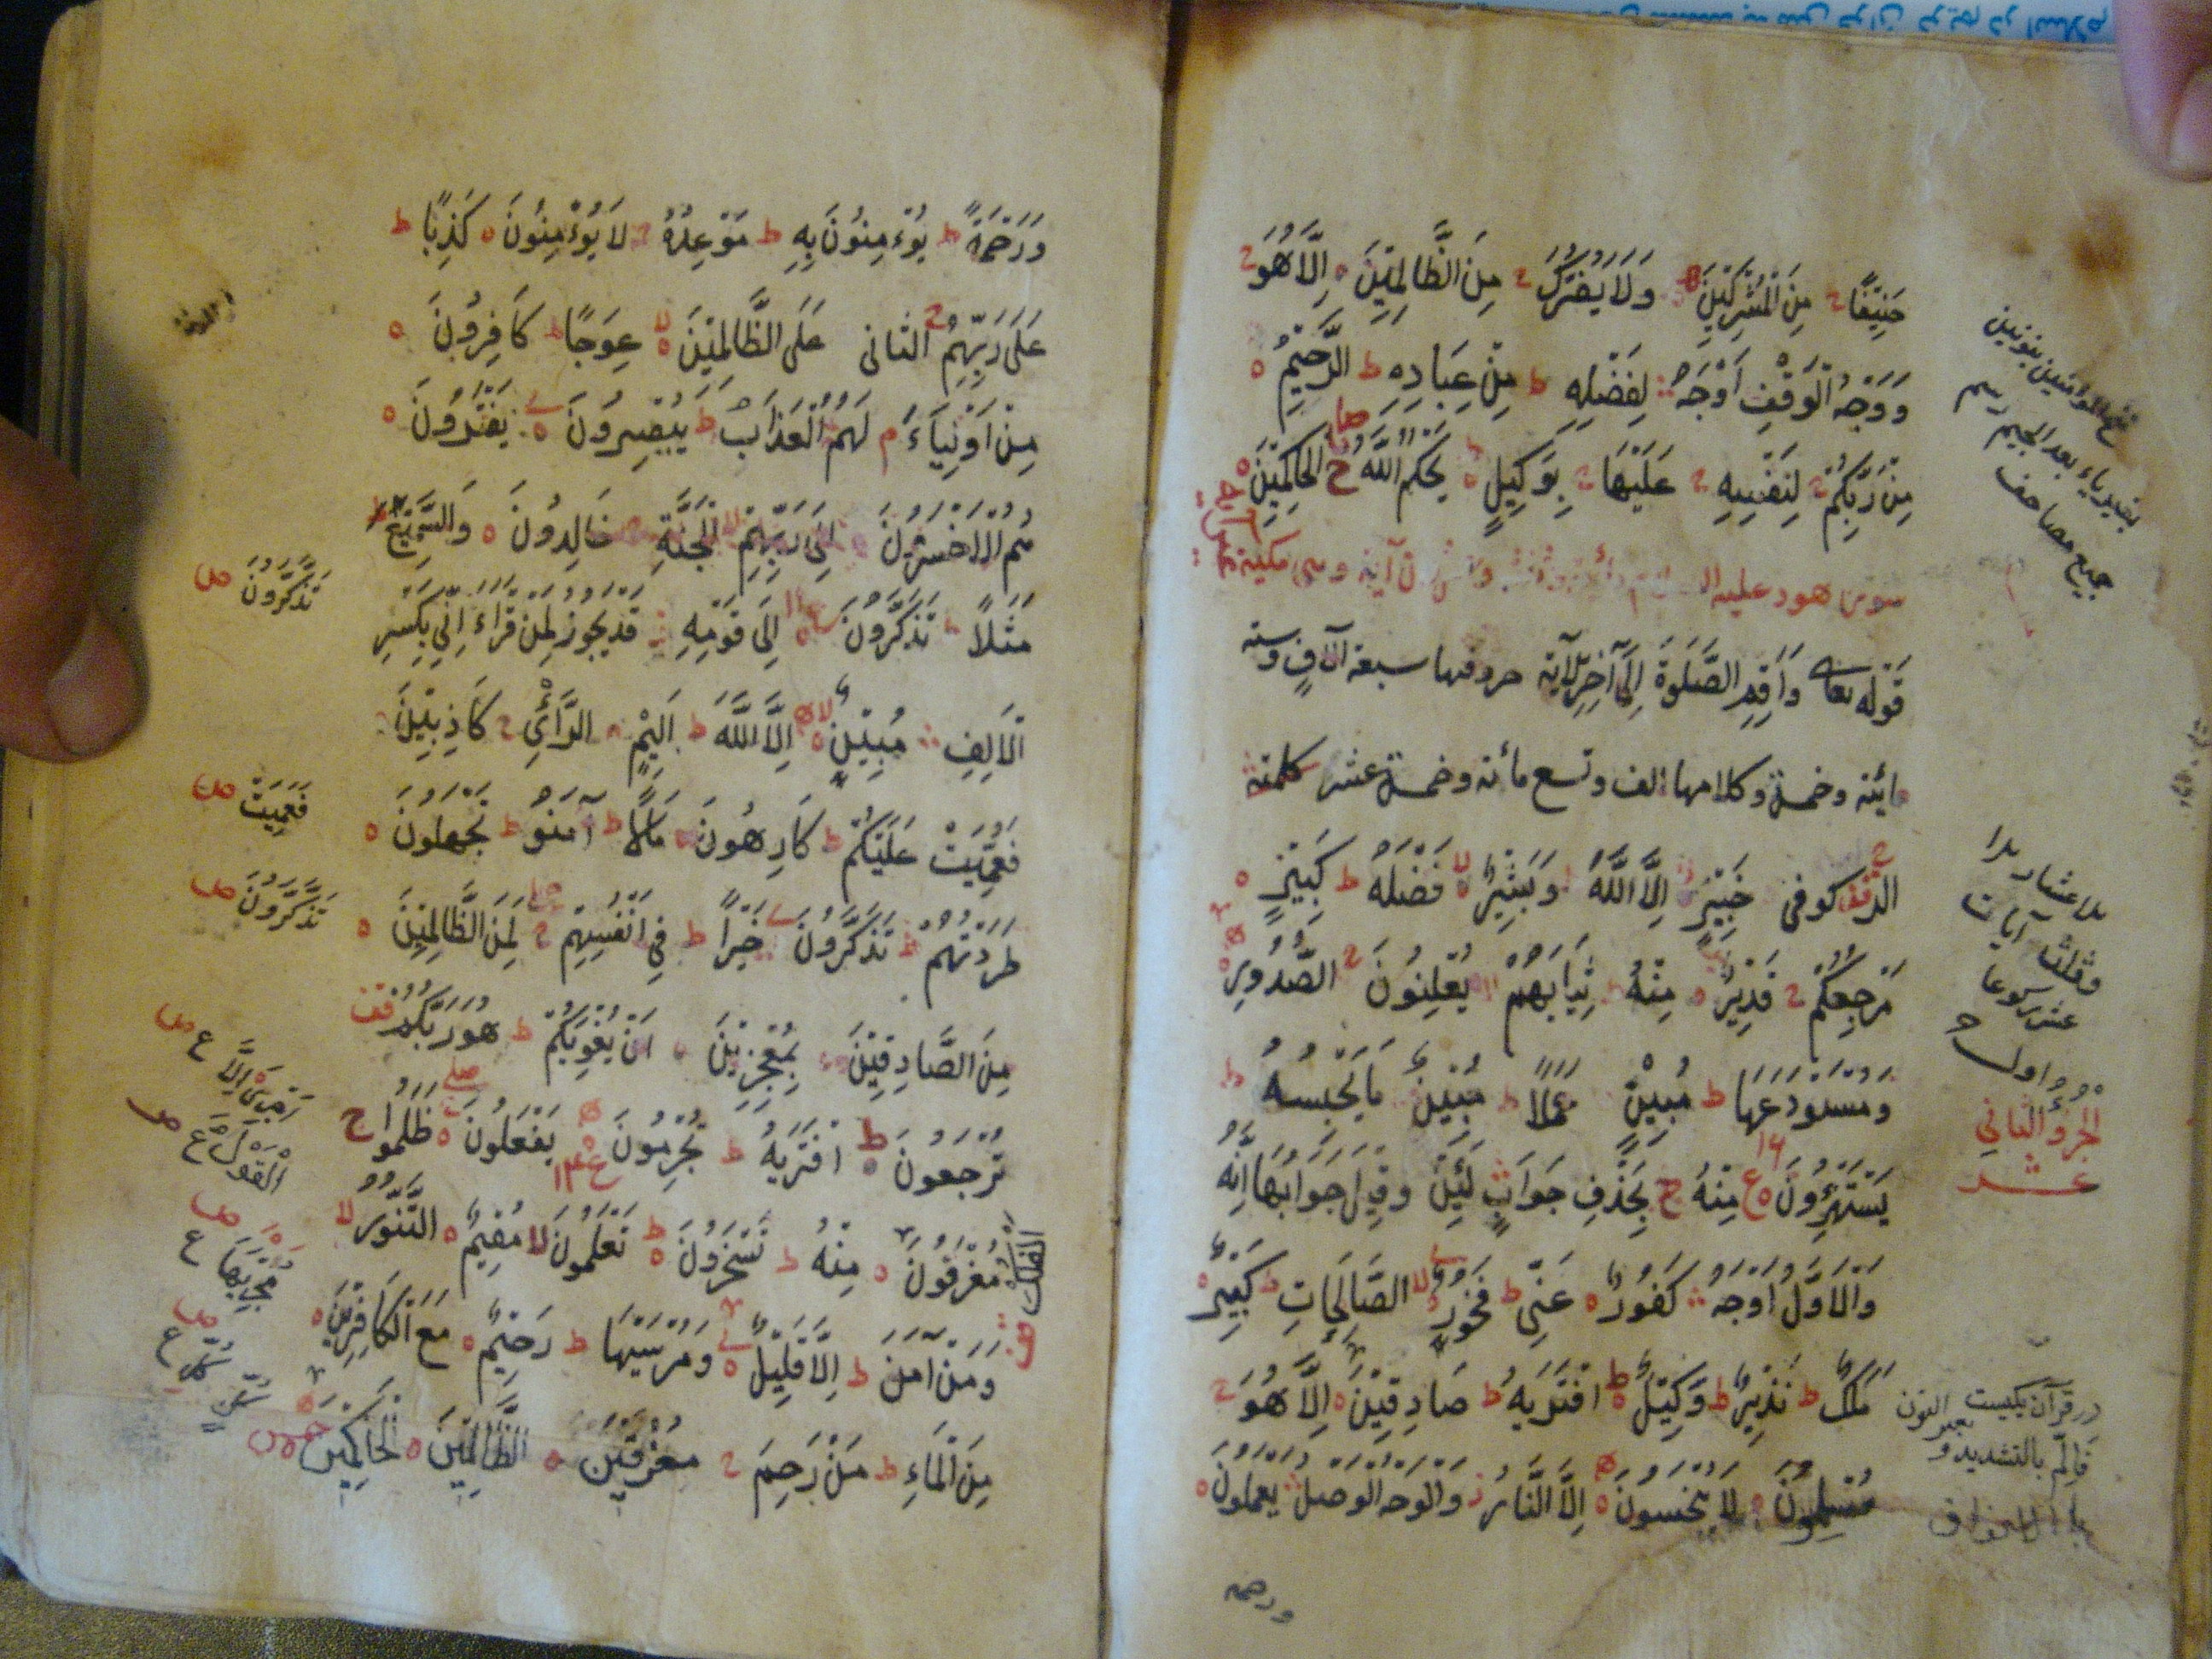 حَنِيْفًا ح مِنَ الْمُشْرِكِيْنَ وَلَا يَضُرُّكَ ح مِنَ الظَّالِمِيْنَ ه اِلَّا هُوَ ح
وَوَجْهُ الْوَقْفِ اَوْجَهُ لِفَضْلِهِ ط مِنْ عِبَادِهِ ط الرَّحِيْمُ ه
مِنْ رَبِّكُمْ ح لِنَفْسِهِ ح عَلَيْهَا ح بِوَكِيْلٍ ط يَحْكُمَ اللّٰهُ ح الْحَاكِمِيْنَ ه
سورة هود عليه السلام آية وهى مكية
قَوْلَه تعالى وَاَقِمِ الصَّلٰوةَ اِلَى آخِرِ الآيَةِ حروفها سبعة آلَافٍ وستة
مائة وخمسة وكلامها الف وتسع مائة وخمسة عشر كلمة
الٓرٰ قف كوفى خَبِيْرٍ اِلَّا اللّٰهَ وَبَشِيْرٌ لا فَضْلَهُ ط كَبِيْرٍ ه
مَرْجِعُكُمْ ح قَدِيْرٌ ه مِنْهُ ط ثِيَابَهُمْ لا يُعْلِنُوْنَ ح الصُّدُوْرِ ه
وَمُسْتَوْدَعَهَا ط مُبِيْنٍ عَمَلًا ط مُبِيْنٌ مَا يَحْبِسُهُ ط
يَسْتَهْزِؤُنَ ه ع ١٤ مِنْهُ ح بِحَذْفِ جَوَابِ لَئِنْ وَقِيْلَ جَوَابُهَا اِنَّهُ
وَالْاَوَّلُ اَوْجَهُ كَفُوْرٌ ه عَنِّى ط فَخُوْرٌ لا الصَّالِحَاتِ ط كَبِيْرٌ ه
مَلَكٌ ط نَذِيْرٌ ط وَكِيْلٌ ط افْتَرٰيهُ ط صَادِقِيْنَ ه اِلَّا هُوَ ح
مُسْلِمُوْنَ ه لَا يُبْخَسُوْنَ ه اِلَّا النَّارُ ز وَالْوَجْهُ الْوَصْلُ يَعْمَلُوْنَ ه
ورحمة
ننج المؤمنين بنونين
بغير ياء بعد الجيم رسم
جميع مصاحف
وثلث آيات
عشر ركوعا
اول ح
الْجُزْؤُ الثَّانِي
عشر
در قرآن يكيست
فَاِلَّمْ بالتشديد و
بعد النون
وَرَحْمَةً ط يُوْءمِنُوْنَ بِهِ ط مَوْعِدُهُ ح لَا يُوْءمِنُوْنَ ه كَذِبًا ط
عَلَى رَبِّهِمْ ح الثانى عَلَى الظَّالِمِيْنَ لا عِوَجًا ط كَافِرُوْنَ ه
مِنْ اَوْلِيَاءَ م لَهُمُ الْعَذَابُ ط يُبْصِرُوْنَ ه يَفْتَرُوْنَ ه
هُمُ الْاَخْسَرُوْنَ اِلَى رَبِّهِمْ لا الْجَنَّةِ خَالِدُوْنَ ه وَالسَّمِيْعِ ط
مَثَلًا ط تَذَكَّرُوْنَ ه اِلَى قَوْمِهِ ز قَدْ يَجُوْزُ لِمَنْ قَرَاَءَ اِنِّى بِكَسْرِ
الْاَلِفِ مُبِيْنٌ لا اِلَّا اللّٰهَ ط اَلِيْمٍ ه الرَّاْىِ ح كَاذِبِيْنَ
فَعُمِّيَتْ عَلَيْكُمْ ط كَارِهُوْنَ ه مَالًا ط آمَنُوْا ط تَجْهَلُوْنَ ه
طَرَدْتُّهُمْ ط تَذَكَّرُوْنَ خَيْرًا ط فِى اَنْفُسِهِمْ ح لَمِنَ الظَّالِمِيْنَ ه
مِنَ الصَّادِقِيْنَ ه بِمُعْجِزِيْنَ ه اَنْ يُغْوِيَكُمْ ط هُوَ رَبُّكُمْ قف
تُرْجَعُوْنَ ط افْتَرٰيهُ ط تُجْرِمُوْنَ ه يَفْعَلُوْنَ ه ظَلَمُوْا ج
مُغْرَقُوْنَ ه مِنْهُ ط تَسْخَرُوْنَ ط تَعْلَمُوْنَ لا مُقِيْمٌ ه التَّنُّوْرُ لا
وَمَنْ آمَنَ ط اِلَّا قَلِيْلٌ ه وَمُرْسٰيهَا ط رَحِيْمٌ ه مَعَ الْكَافِرِيْنَ ه
مِنَ الْمَاءِ ط مَنْ رَحِمَ ح مُغْرَقِيْنَ ه الظَّالِمِيْنَ ه الْحَاكِمِيْنَ ه
تَذَّكَّرُوْنَ ص
فَعَمِيَتْ ص
تَذَّكَّرُوْنَ ص
الْقَوْلُ ع ص
الفلك
مُجْرٰيهَا ع ص